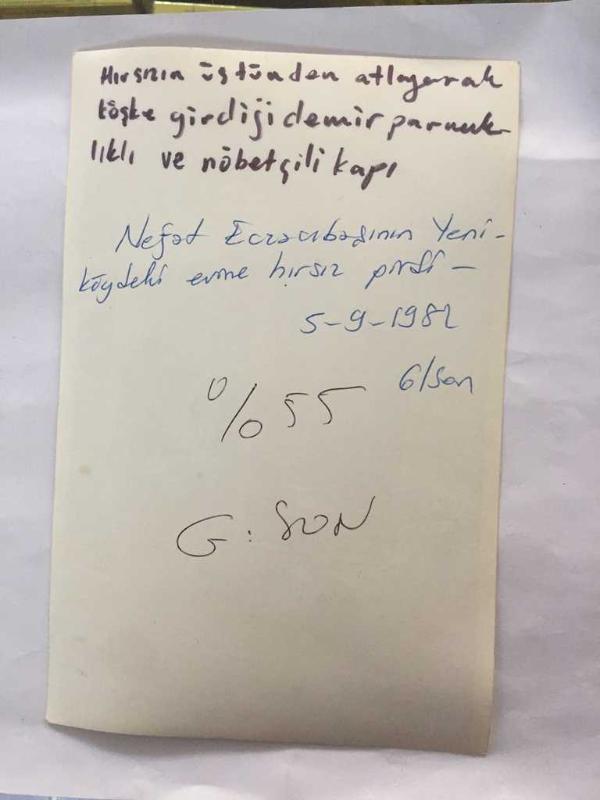 Hırsızın üstünden atlayarak
köşke girdiği demir parmak-
lıklı ve nöbetçili kapı
Nejat Eczacıbaşının Yeni-
köydeki evine hırsız girdi -
5-9-1982
G/Son
%55
G: SON